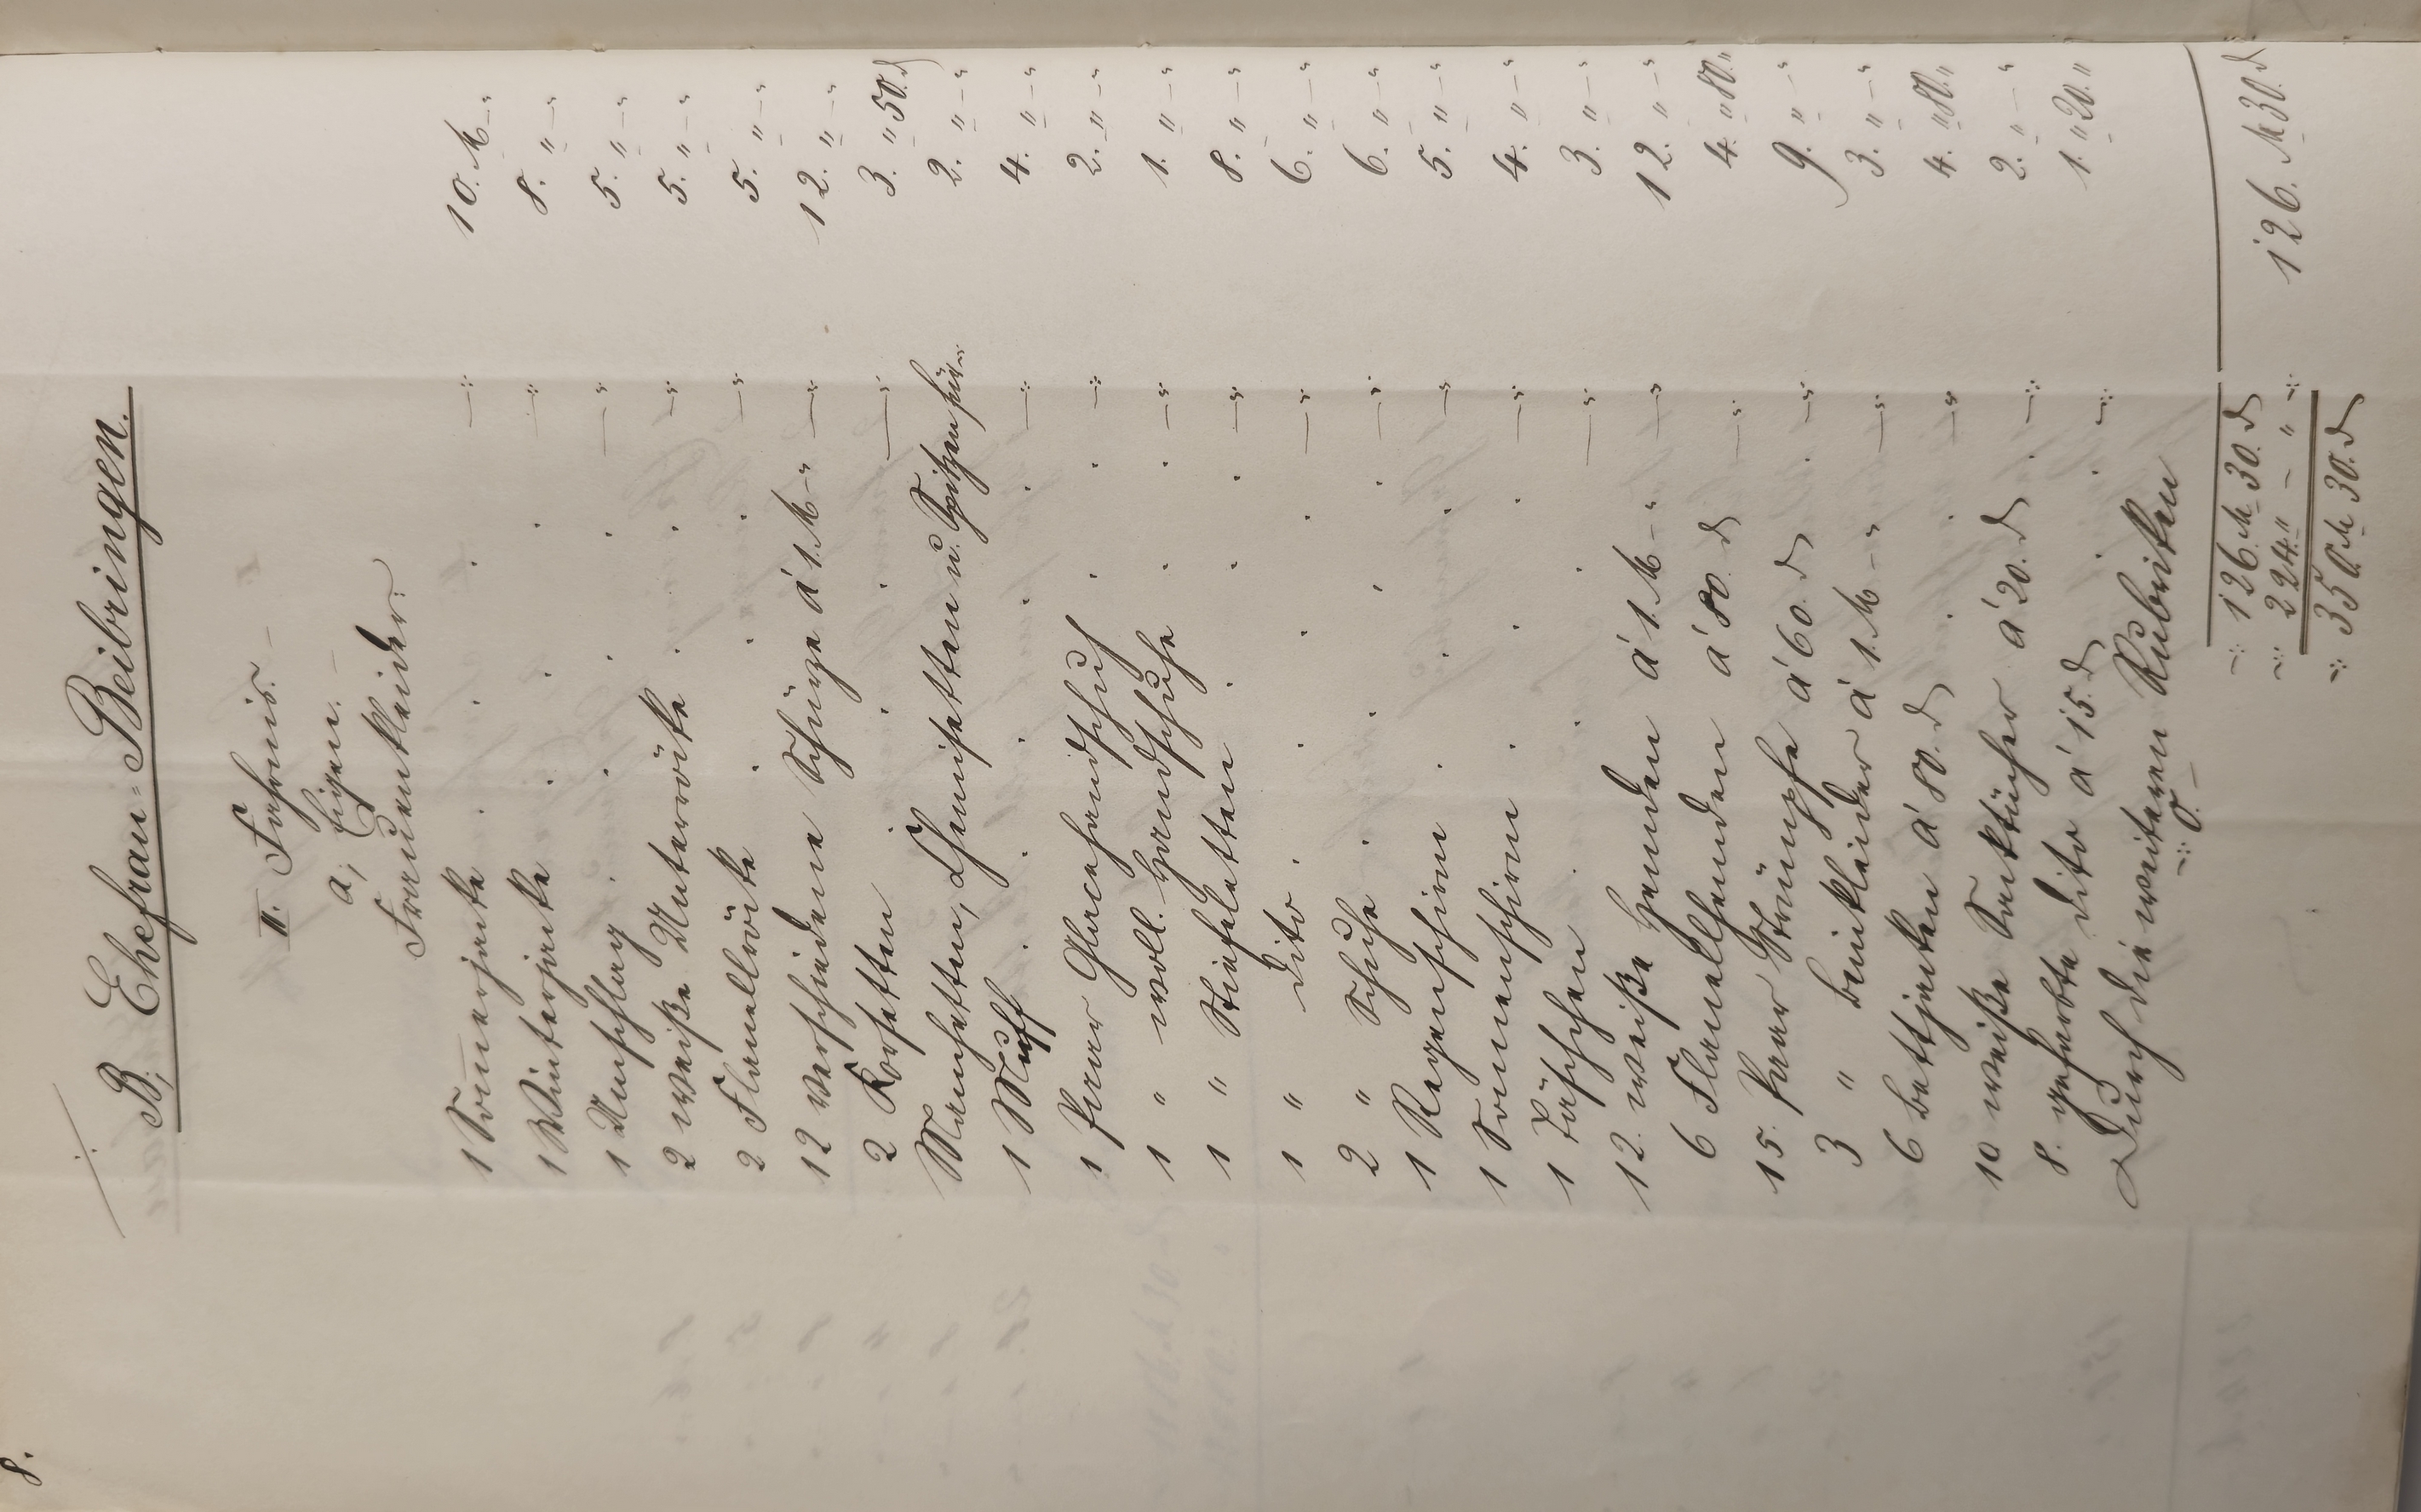 8.
B; Ehefrau=Beibringen.
II. Fahrnis. –
a, Eigen. –
Frauenkleider:
1 Som̅erjacke . . . —:: 10. M – "
1 Winterjacke . . . —:: 8. " – "
1 Umschlag . . . . —" 5. " – "
2 weiße Unterröcke . . —" 5. " – "
2 Flanellröcke . . . —" 5. " – "
12 verschiedene Schürze á 1. M – " —" 12. " – "
2 Korsetten . . . —" 3. " 50. ₰
Manschetten, Chemisetten u. Spitzen für 2. " – "
1 Muff . . . . . —:: 4. " – "
1 Paar Glacehandschuh . . —:: 2. " – "
1 " woll. Handschuhe . . —" 1. " – "
1 " Stiefeletten . . . —" 8. " – "
1 " dito . . . . —" 6. " – "
2 " Schuhe . . . . —" 6. " – "
1 Regenschirm . . . —" 5. " – "
1 Sonnenschirm . . . —" 4. " – "
1 Täschchen . . . —" 3. " – "
12. weiße Hemden á 1. M – " —" 12. " – "
6 Flanellhemden á 80. ₰ —" 4. " 80. "
15. Paar Strümpfe á 60. ₰ . —" 9. " – "
3 " Beinkleider á 1. M – " —" 3. " – "
6 Bettjacken á 80. ₰ . . —" 4. " 80. "
10 weiße Sacktücher á 20. ₰ . —:: 2. " – "
8. gefarbte dito á 15. ₰ . . —:: 1. " 20. "
Durch die weiteren Rubriken
–:: 0. –
–:: 126. M 30. ₰ 126. M 30. ₰
–:: 224. " – " –::
–:: 350. M 30. ₰